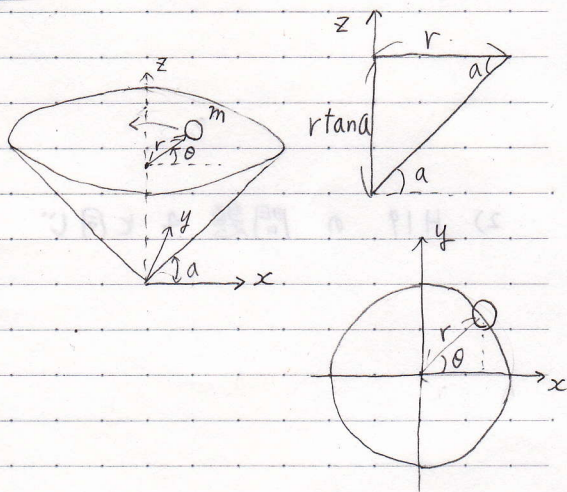 z
m
r
θ
y
a
x
z
r
a
rtana
a
2) H19 の 問題 と同じ
y
r
θ
x